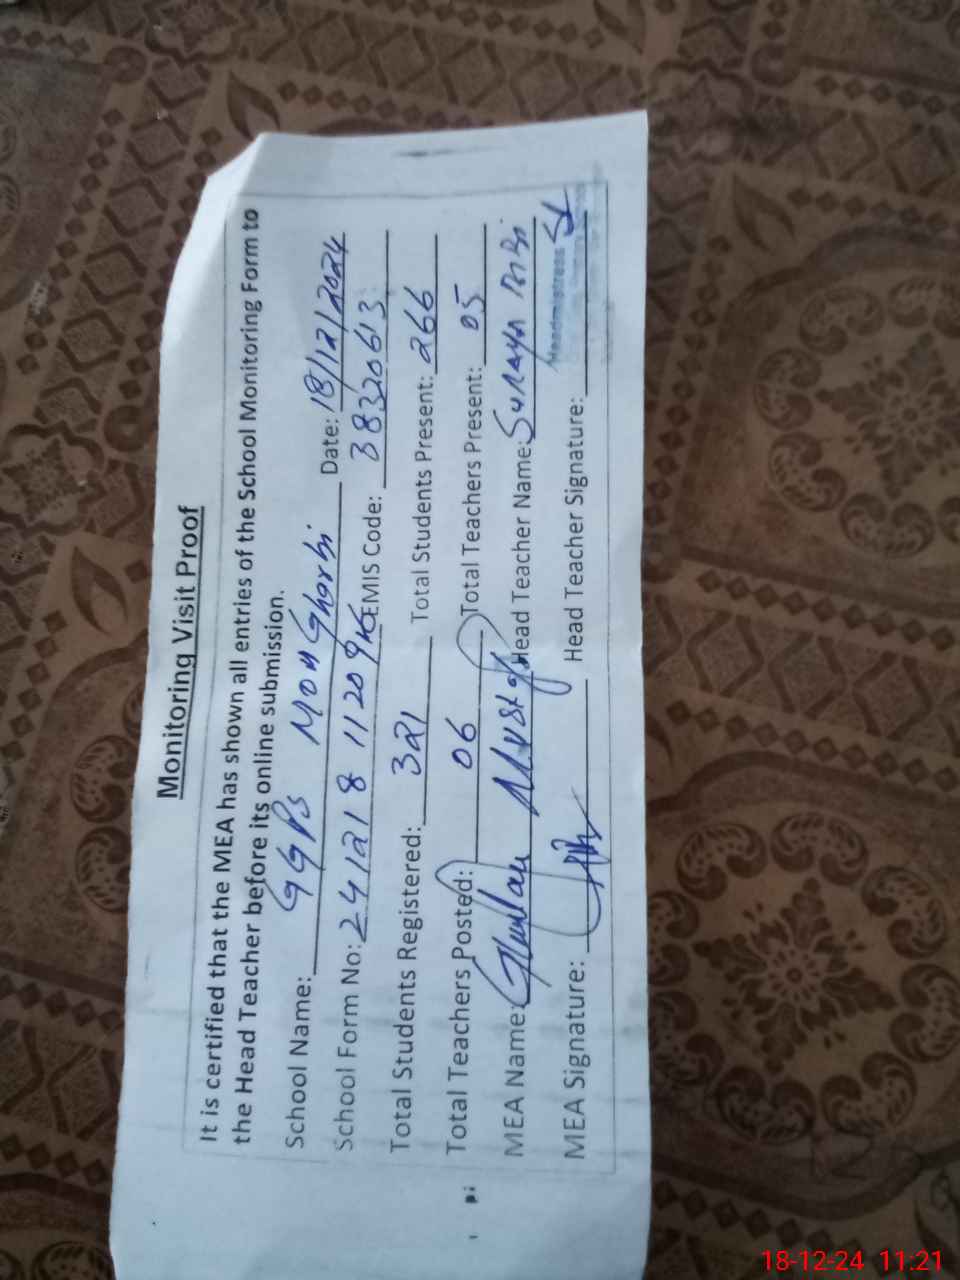 Monitoring Visit Proof
It is certified that the MEA has shown all entries of the School Monitoring Form to
the Head Teacher before its online submission.
School Name: GGPS Moh Gharbi Date: 18/12/2024
School Form No: 241218 11209 EMIS Code: 38320613
Total Students Registered: 321 Total Students Present: 266
Total Teachers Posted: 06 Total Teachers Present: 05
MEA Name: Ghulam Mustafa Head Teacher Name: Suraya BiBi
MEA Signature: Head Teacher Signature:
Headmistress
18-12-24 11:21